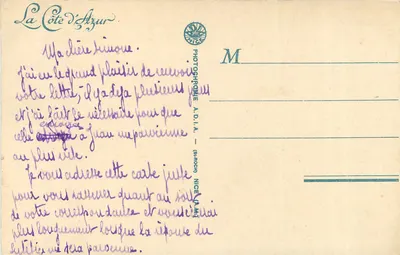 La Côte d'Azur
Ma chère Simone.
J'ai eu le grand plaisir de recevoir
votre lettre, il y a déjà plusieurs jours
et j'ai fait le nécessaire pour que
celle à Jean me parvienne
au plus vite.
Je vous adresse cette carte juste
pour vous rassurer quant au sort
de votre correspondance et vous écrirai
plus longuement lorsque la réponse du
me sera parvenue.
M
PHOTOGRAPHIE A.D.I.A. - NICE